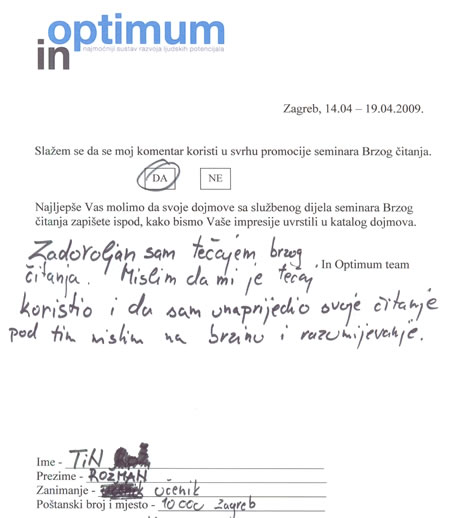 optimum
in
najmoćniji sustav razvoja ljudskih potencijala
Zagreb, 14.04 – 19.04.2009.
Slažem se da se moj komentar koristi u svrhu promocije seminara Brzog čitanja.
DA NE
Najljepše Vas molimo da svoje dojmove sa službenog dijela seminara Brzog
čitanja zapišete ispod, kako bismo Vaše impresije uvrstili u katalog dojmova.
Zadovoljan sam tečajem brzog
čitanja. Mislim da mi je tečaj , In Optimum team
koristio i da sam unaprijedio svoje čitanje
pod tim mislim na brzinu i razumijevanje.
Ime - TiN
Prezime - ROŽMAN
Zanimanje - učenik
Poštanski broj i mjesto - 10 000 Zagreb